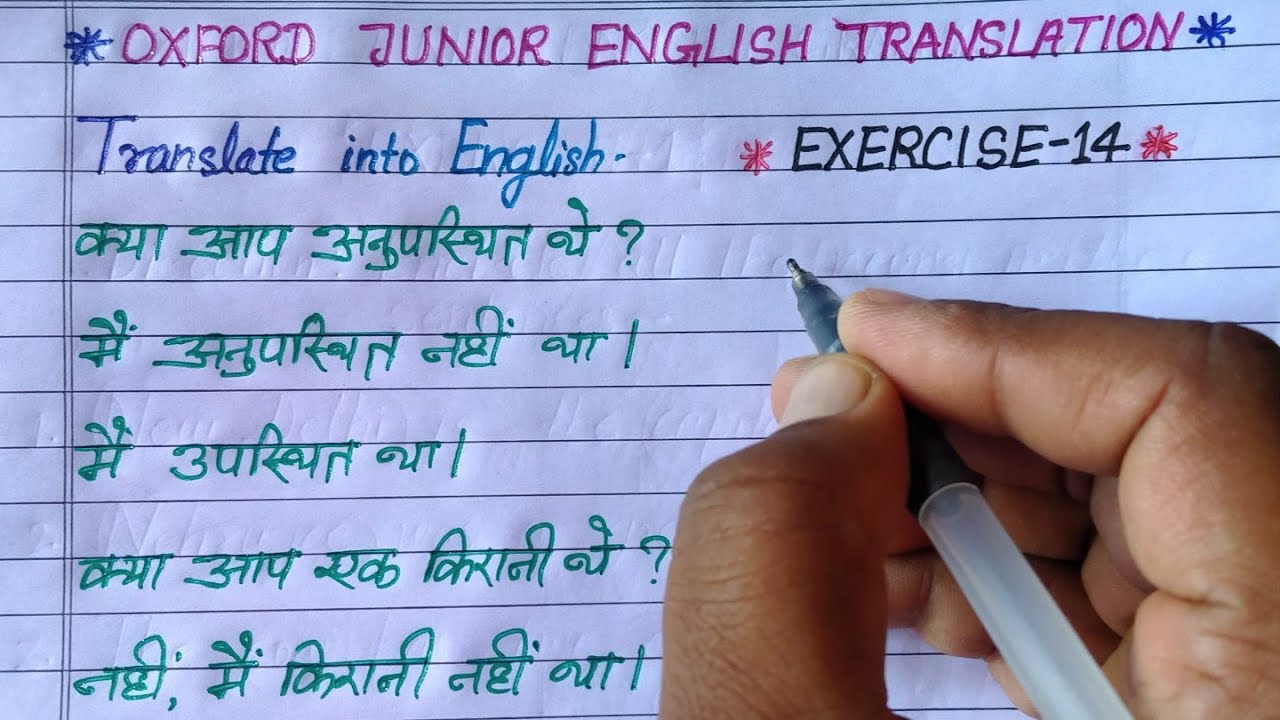 *OXFORD JUNIOR ENGLISH TRANSLATION*
Translate into English. *EXERCISE-14*
क्या आप अनुपस्थित थे ?
मैं अनुपस्थित नहीं था।
मैं उपस्थित था।
क्या आप एक किरानी थे ?
नहीं, मैं किरानी नहीं था।